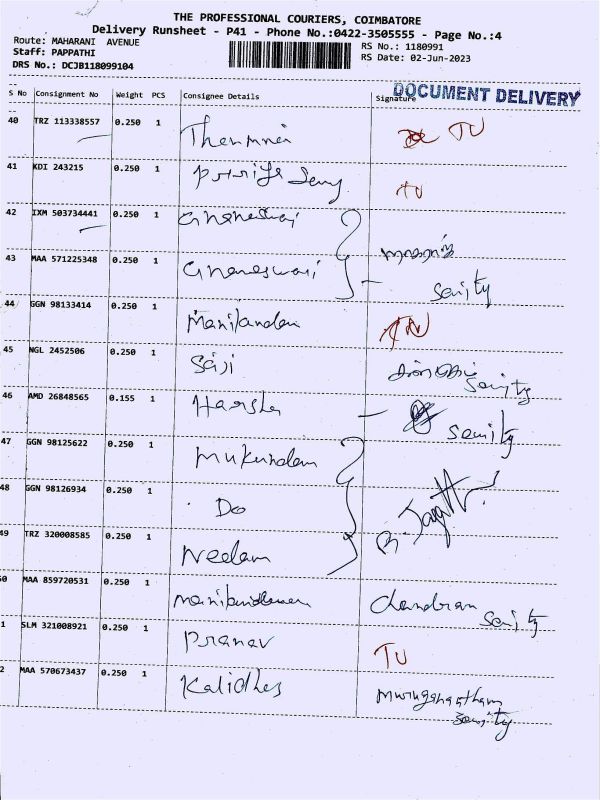 THE PROFESSIONAL COURIERS, COIMBATORE
Delivery Runsheet - P41 - Phone No.:0422-3505555 - Page No.:4
Route: MAHARANI AVENUE
Staff: PAPPATHI
DRS No.: DCJB118099104
RS No.: 1180991
RS Date: 02-Jun-2023
DOCUMENT DELIVERY
S No Consignment No Weight PCS Consignee Details Signature
40 TRZ 113338557 0.250 1 TU
41 KDI 243215 0.250 1 TU
42 IXM 503734441 0.250 1
43 MAA 571225348 0.250 1 Gnaneswari
44 GGN 98133414 0.250 1 Manikandan
45 NGL 2452506 0.250 1 Saji
46 AMD 26848565 0.155 1 Harsha
47 GGN 98125622 0.250 1 Mukundam
48 GGN 98126934 0.250 1 Do
49 TRZ 320008585 0.250 1 Neelam
0 MAA 859720531 0.250 1 Chandran
1 SLM 321008921 0.250 1 Pranav TU
2 MAA 570673437 0.250 1 Kalidhes